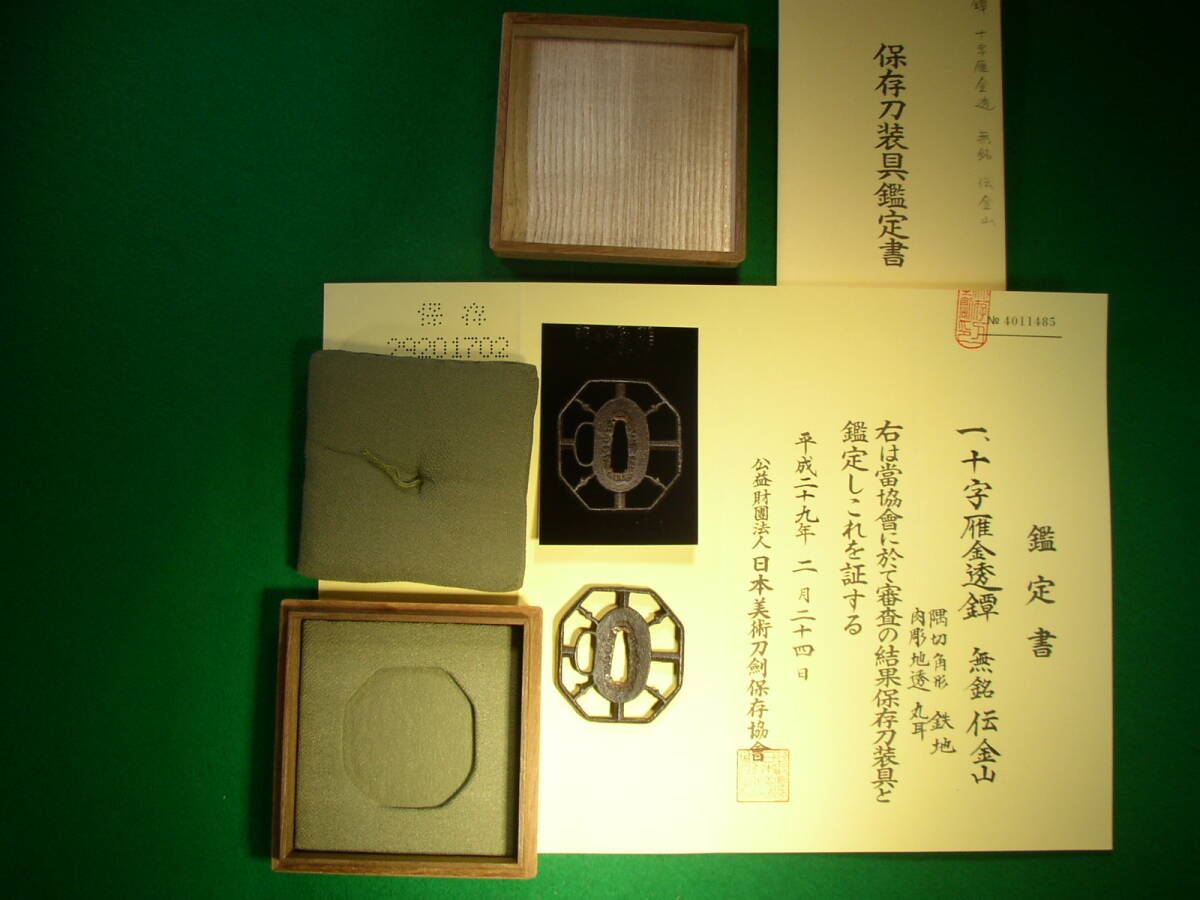 鐔 十字雁金透 無銘 伝金山
保存刀装具鑑定書
保存
29201702
№ 4011485
鑑定書
一、十字雁金透鐔 無銘 伝金山
隅切角形 鉄地
肉彫地透 丸耳
右は當協會に於て審査の結果保存刀装具と
鑑定しこれを証する
平成二十九年 二月二十四日
公益財團法人 日本美術刀劍保存協會